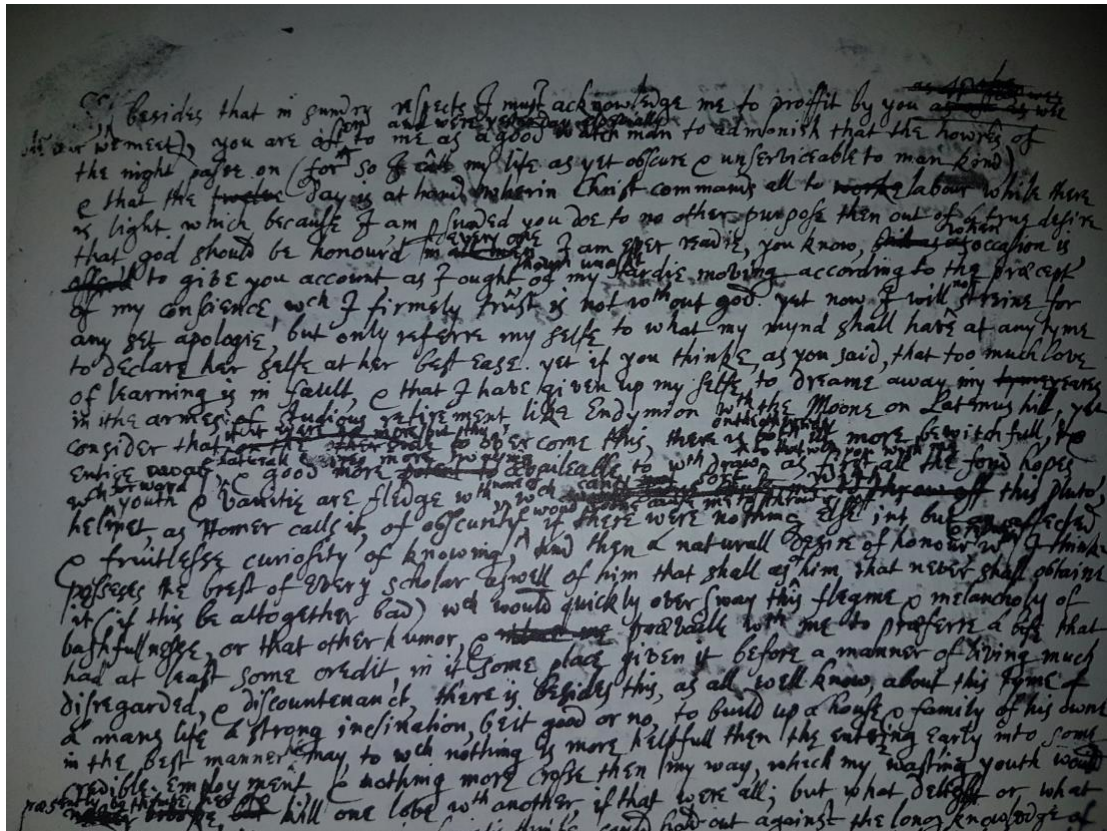 Sr, besides that in sundry respects I must acknowledge me to proffit by you
when ever wee meet), you are often to me as a good watch man to admonish that the howres of
the night passe on (for so I call my life as yet obscure & unserviceable to man kind)
& that the day is at hand wherin Christ commands all to labour while there
is light which because I am persuaded you doe to no other purpose then out of a true desire
that god should be honourd in every one I am ever readie, you know, when occasion is
to give you account, as I ought, though unaskt of my tardie moving according to the præcept
of my conscience, wch I firmely trust is not wth out god. yet now I will not streine for
any set apologie, but only referre my selfe to what my mynd shall have at any tyme
to declare her selfe at her best ease. yet if you thinke, as you said, that too much love
of learning is in fault, & that I have given up my selfe to dreame away my yeares
in the armes of studious retirement like Endymion wth the Moone on Latmus hill, yet
consider that to overcome this, there is more bewitchfull,
entire good more availeable to wth draw as first all the fond hopes
wch forward youth & vanitie are fledge wth this Pluto's
helmet, as Homer calls it, of obscurity if there were nothing else in't but affected
& fruitlesse curiosity of knowing, and then a naturall desire of honour wch I think
possesses the brest of every scholar aswell of him that shall as him that never shall obtaine
it (if this be altogether bad) wch would quickly over sway this flegme & melancholy of
bashfullnesse, or that other humor, & prævaile with me to præferre a life that
had at least some credit in it some place given it before a manner of living much
disregarded, & discountenanc't, there is besides this, as all well know about this tyme of
a mans life a strong inclination, be it good or no, to build up a house & family of his owne
in the best manner he may to wch nothing is more helpfull then the entring early into some
credible employment, & nothing more crosse then my way, which my wasting youth would
kill one love wth another, if that were all; but what delight or what
could hold out against the long knowledge of